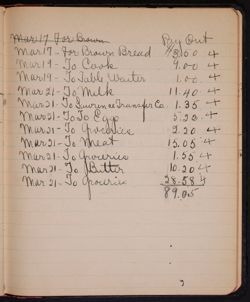 Mar 17 For Brown By Out
Mar 17 - For Brown Bread $8.00 4
Mar 19 - To Cook 9.00 4
Mar 19 - To Table Waiter 1.00 4
Mar 21 - To Milk 11.40 4
Mar 21 - To Lawrence Transfer Co. 1.35 4
Mar 21 - To Egg 5.20 4
Mar 21 - To Groceries 2.20 4
Mar 21 - To Meat 15.05 4
Mar 21 - To Groceries 1.55 4
Mar 21 - To Butter 10.20 4
Mar 21 - To Groceries 28.58 4
89.05